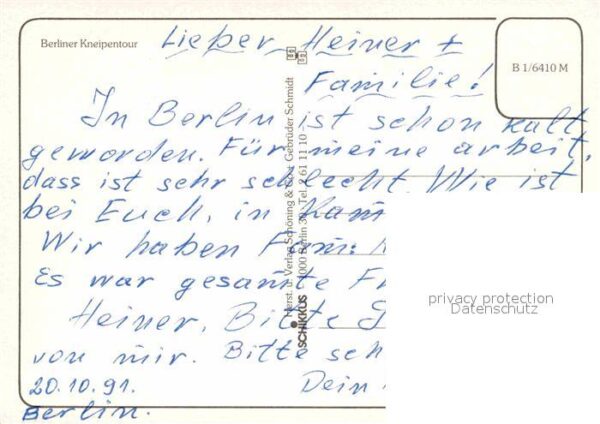 Berliner Kneipentour
Lieber Heiner +
Familie!
B 1/6410 M
In Berlin ist schon kalt
geworden. Für meine arbeit,
dass ist sehr schlecht. Wie ist
bei Euch, in
Wir haben
Es war gesamte
Heiner, Bitte
von mir. Bitte
20.10.91. Dein
Berlin.
Herst. u. Verlag Schöning & Co + Gebrüder Schmidt
1000 Berlin Tel. 2 61 11 10
SCHIKKUS
privacy protection
Datenschutz